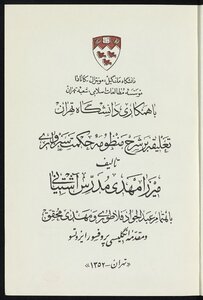 دانشگاه مک‌گیل، مونترال، کانادا
مؤسسهٔ مطالعات اسلامی، شعبهٔ تهران
با همکاری دانشگاه تهران
تعلیقه بر شرح منظومهٔ حکمت سبزواری
تألیف
میرزا مهدی مدرس آشتیانی
باهتمام عبدالجواد فلاطوری و مهدی محقق
و مقدمهٔ انگلیسی پروفسور ایزوتسو
«تهران - ۱۳۵۲»